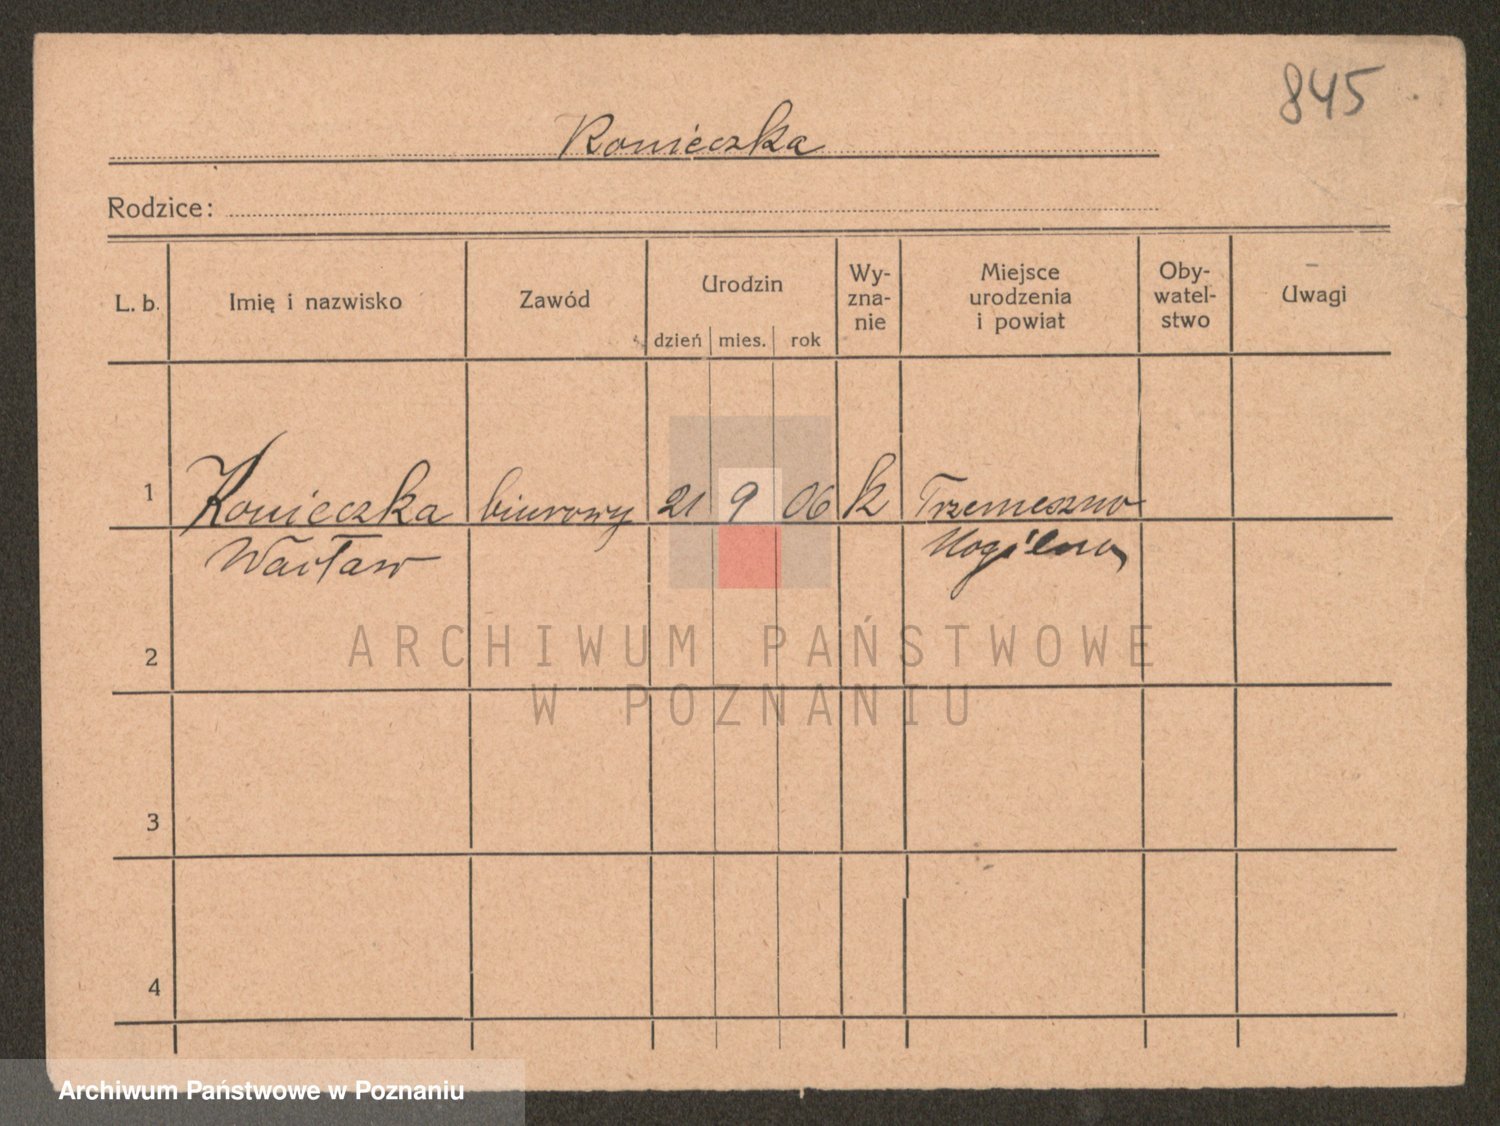 845
Konieczka
Rodzice:
L. b. Imię i nazwisko Zawód Urodzin dzień mies. rok Wy-zna-nie Miejsce urodzenia i powiat Oby-watel-stwo Uwagi
1 Konieczka biurowy 21 9 06 k Trzemeszno
Wacław Mogilno
2
ARCHIWUM PAŃSTWOWE
W POZNANIU
3
4
Archiwum Państwowe w Poznaniu